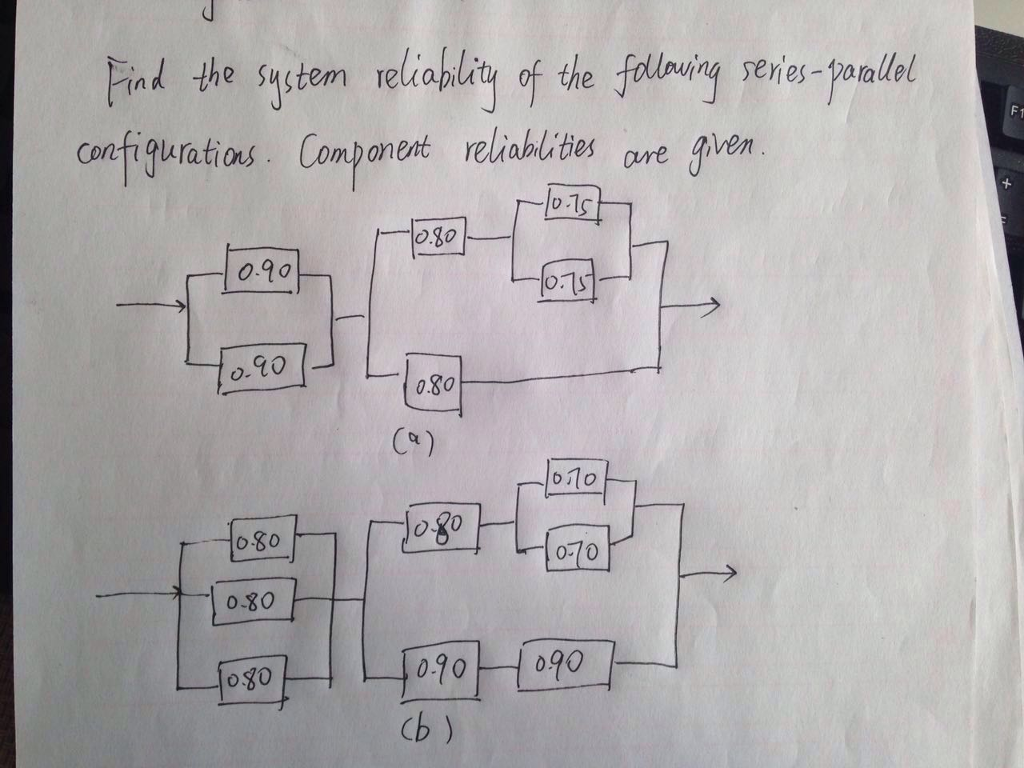 Find the system reliability of the following series-parallel
configurations. Component reliabilities are given.
0.75
0.80
0.90
0.75
0.90
0.80
(a)
0.70
0.80
0.80
0.70
0.80
0.80
0.90
0.90
(b)
F1
+